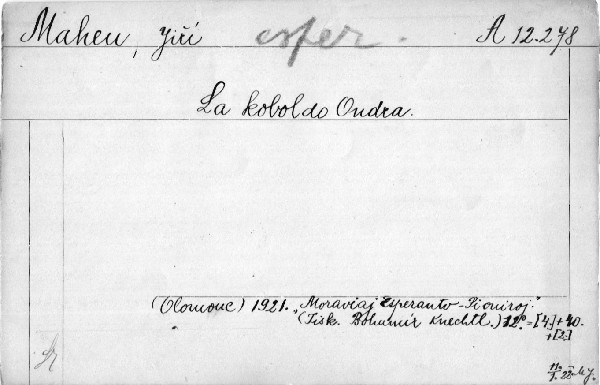 Maheu, Jiří esper. A 12.278
La koboldo Ondra.
(Olomouc) 1921. "Moraviaj Esperanto-Pioniroj."
(Tisk. Bohumír Knechtl.) 12°. = [4] + 40.
+ [2]